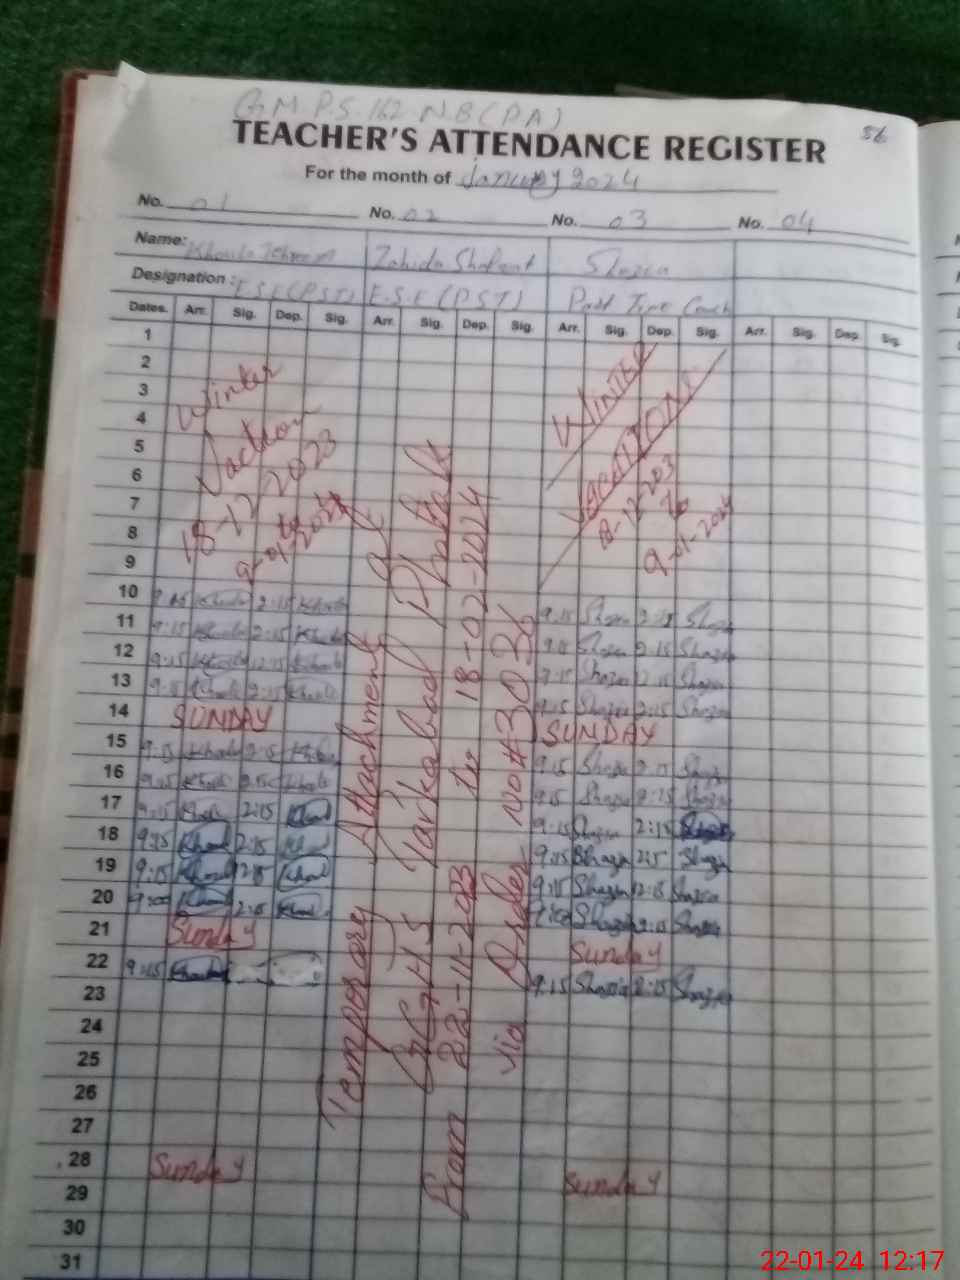 G.M.P.S. 162 N.B (P.A)
56
TEACHER'S ATTENDANCE REGISTER
For the month of January 2024
No. 01 No. 02 No. 03 No. 04
Name: Zahida Shazia
Designation: E.S.E (PST) E.S.E (PST) Part Time Coach
Dates. Arr. Sig. Dep. Sig. Arr. Sig. Dep. Sig. Arr. Sig. Dep. Sig. Arr. Sig. Dep. Sig.
1
2
3
4
5
6
7
8
9
Winter
Vaction
18-12-2023
to
9-01-2024
WINTER
VACATION
18-12-203
To
9-01-2024
Temporary Attachment at
GGHS Tarkabad
From 22-11-2023 to 18-02-2024
vio Order No # 3036
10 2:15
11 9:15 2:15 9:15 Shazia 2:15 Shazia
12 9:15 12:15 9:15 Shazia 2:15 Shazia
13 9:15 2:15 9:15 Shazia 2:15 Shazia
14 SUNDAY 9:15 Shazia 2:15 Shazia
15 9:15 2:15 SUNDAY
16 9:15 9:15 Shazia 2:15 Shazia
17 9:15 2:15 9:15 Shazia 2:15 Shazia
18 9:15 2:15 9:15 Shazia 2:15
19 9:15 12:15 9:15 Shazia Shazia
20 9:00 2:15 9:15 Shazia 12:15 Shazia
21 Sunday Shazia 2:15 Shazia
22 9:15 Sunday
23 9:15 Shazia 2:15 Shazia
24
25
26
27
28 Sunday
29 Sunday
30
31
22-01-24 12:17